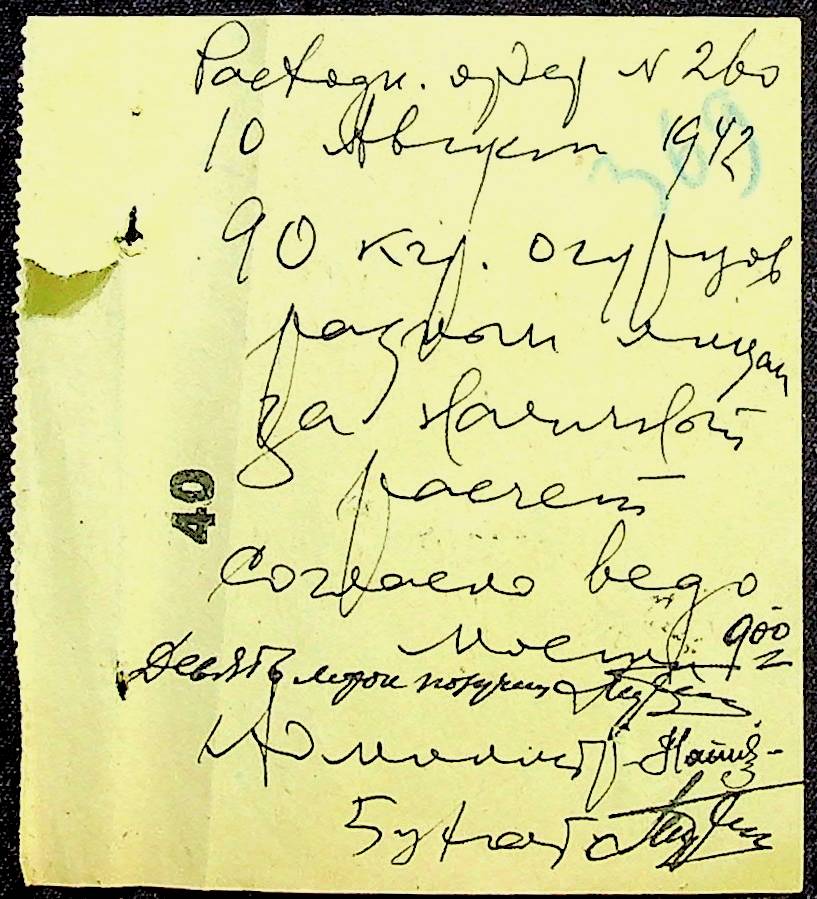 Расходн. ордер N 260
10 Август 1942
90 кгр. огурцов
разном лицам
за наличной
расчет
согласно ведо
мости 900
Девять марок получил
Бухгалт
40